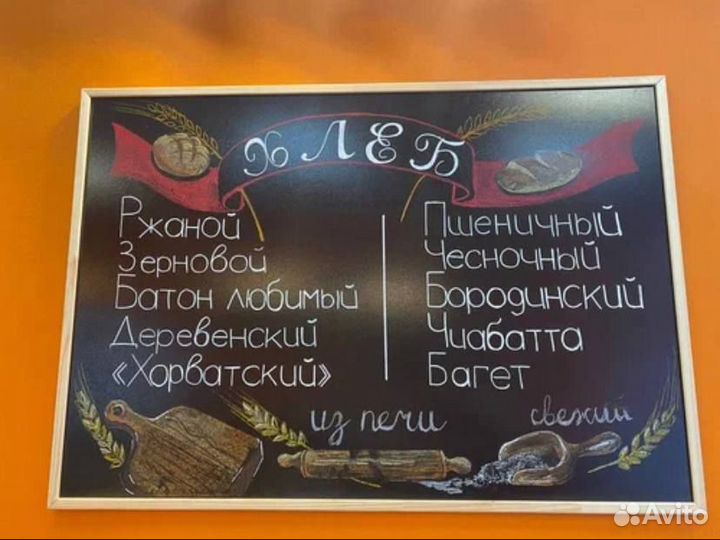 ХЛЕБ
Ржаной
Зерновой
Батон любимый
Деревенский
«Хорватский»
Пшеничный
Чесночный
Бородинский
Чиабатта
Багет
из печи
свежий
Avito